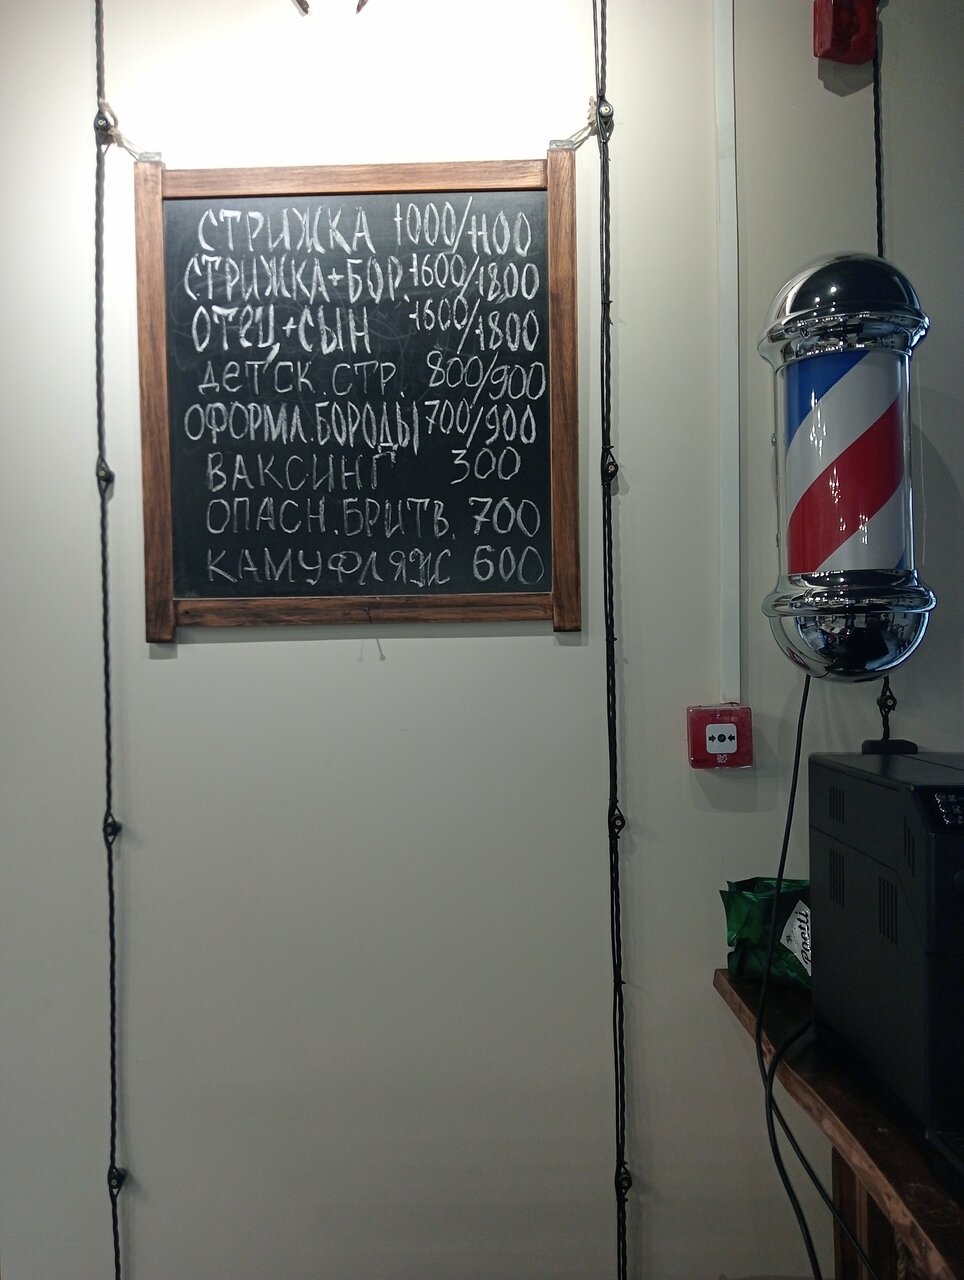 СТРИЖКА 1000/1100
СТРИЖКА+БОР. 1600/1800
ОТЕЦ+СЫН 1600/1800
ДЕТСК.СТР. 800/900
ОФОРМЛ.БОРОДЫ 700/900
ВАКСИНГ 300
ОПАСН.БРИТВ. 700
КАМУФЛЯЖ 600
Paotti